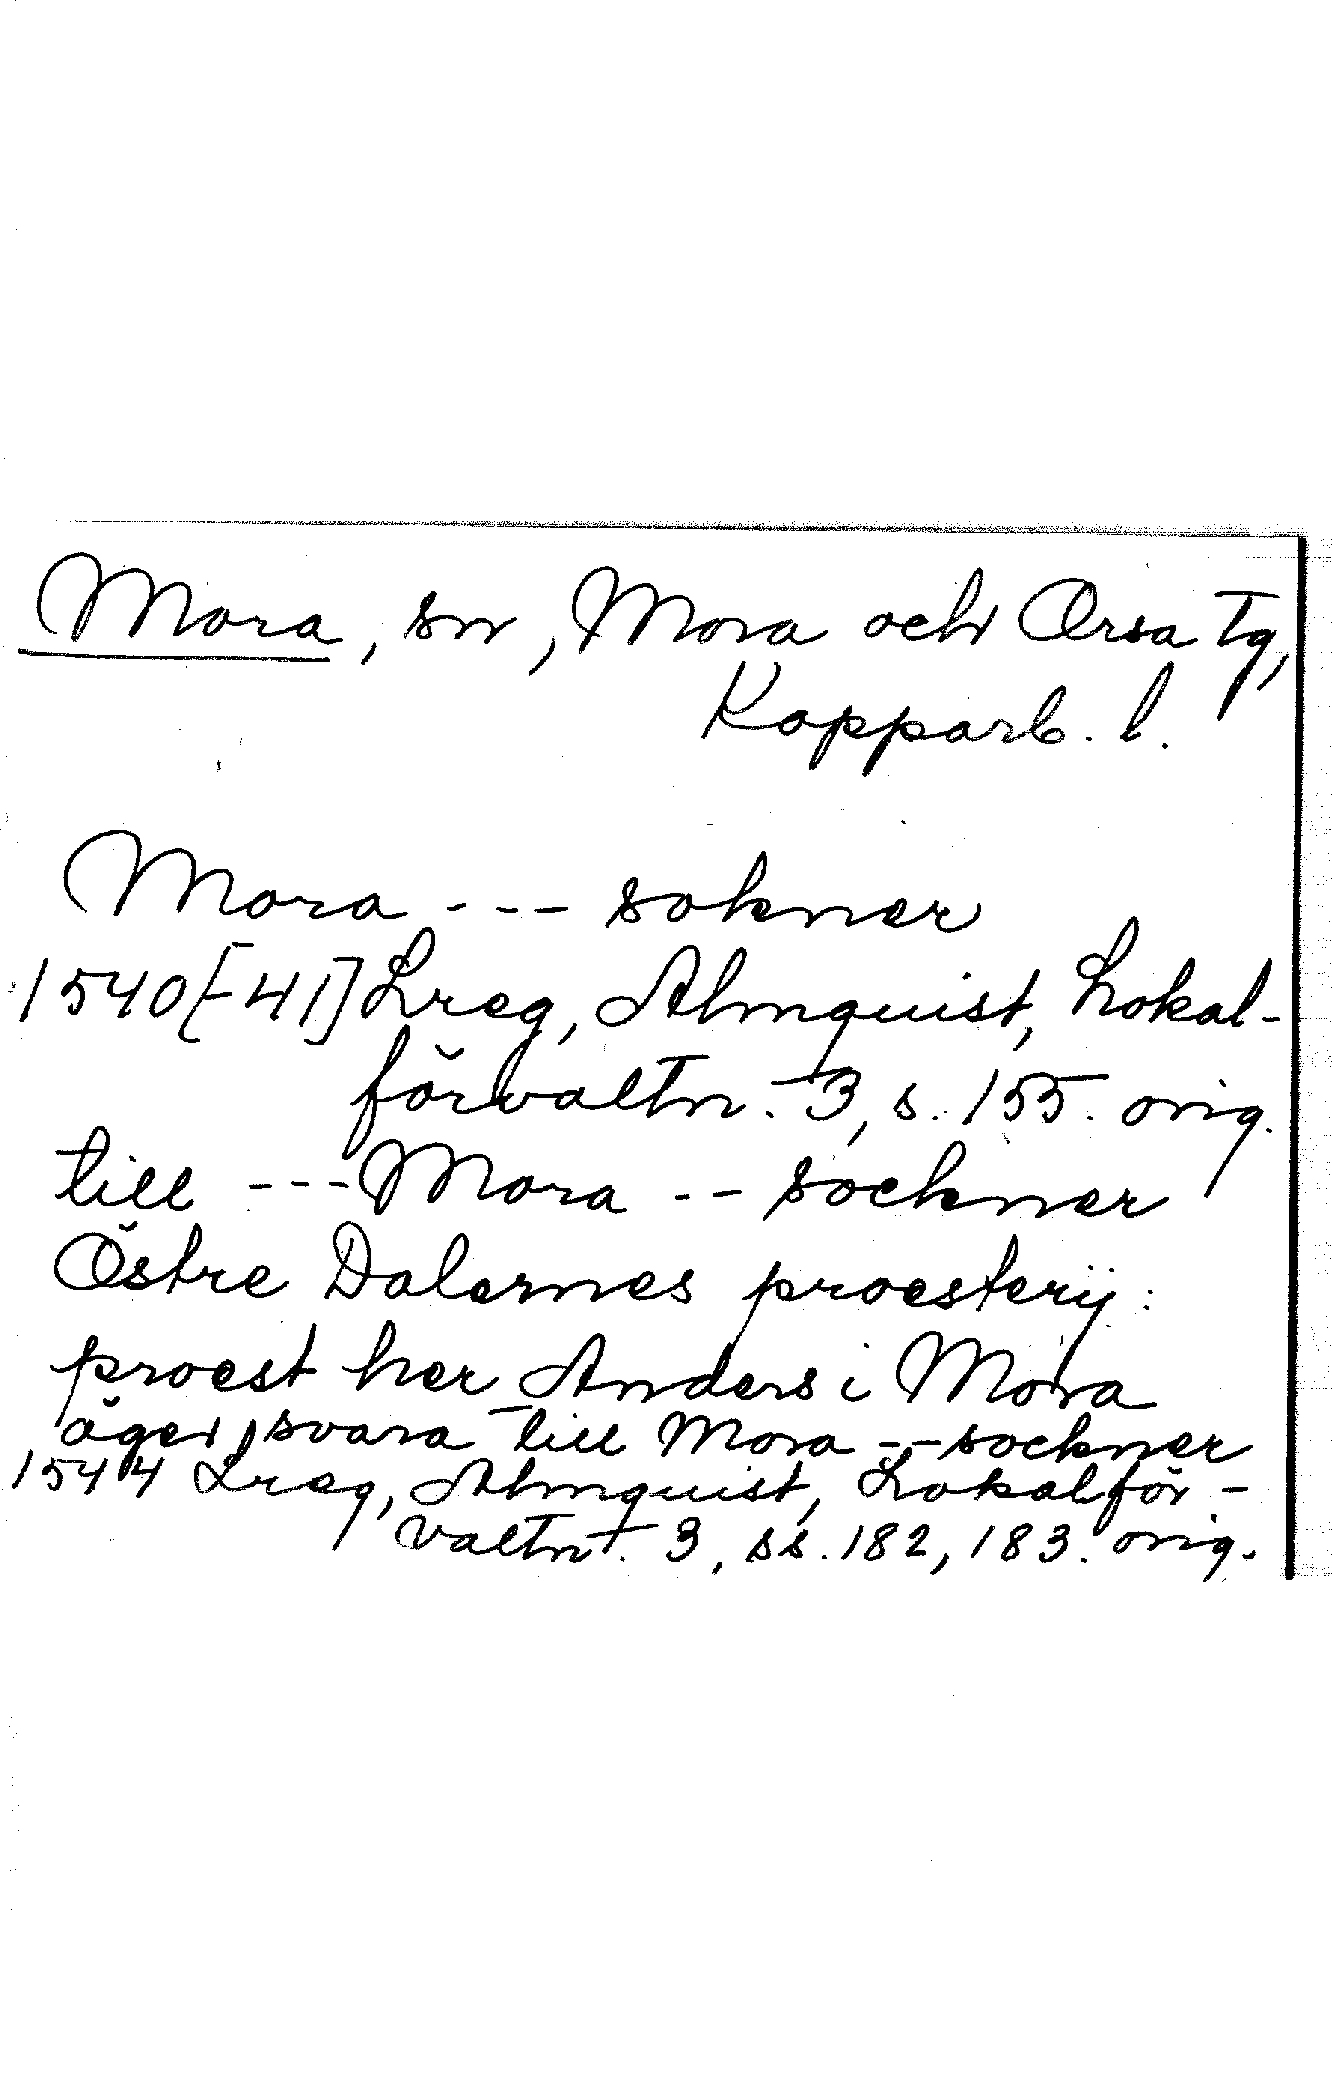 Mora, sn, Mora och Orsa tg,
Kopparb. l.
Mora --- sokner
1540[-41] Lreg, Almquist, Lokal-
förvaltn. 3, s. 155. orig.
till --- Mora -- sockner
Östre Dalernes proesterij:
proest her Anders i Mora
äger svara till Mora -- sockner
1544 Lreg, Almquist, Lokalför-
valtn. 3, ss. 182, 183. orig.